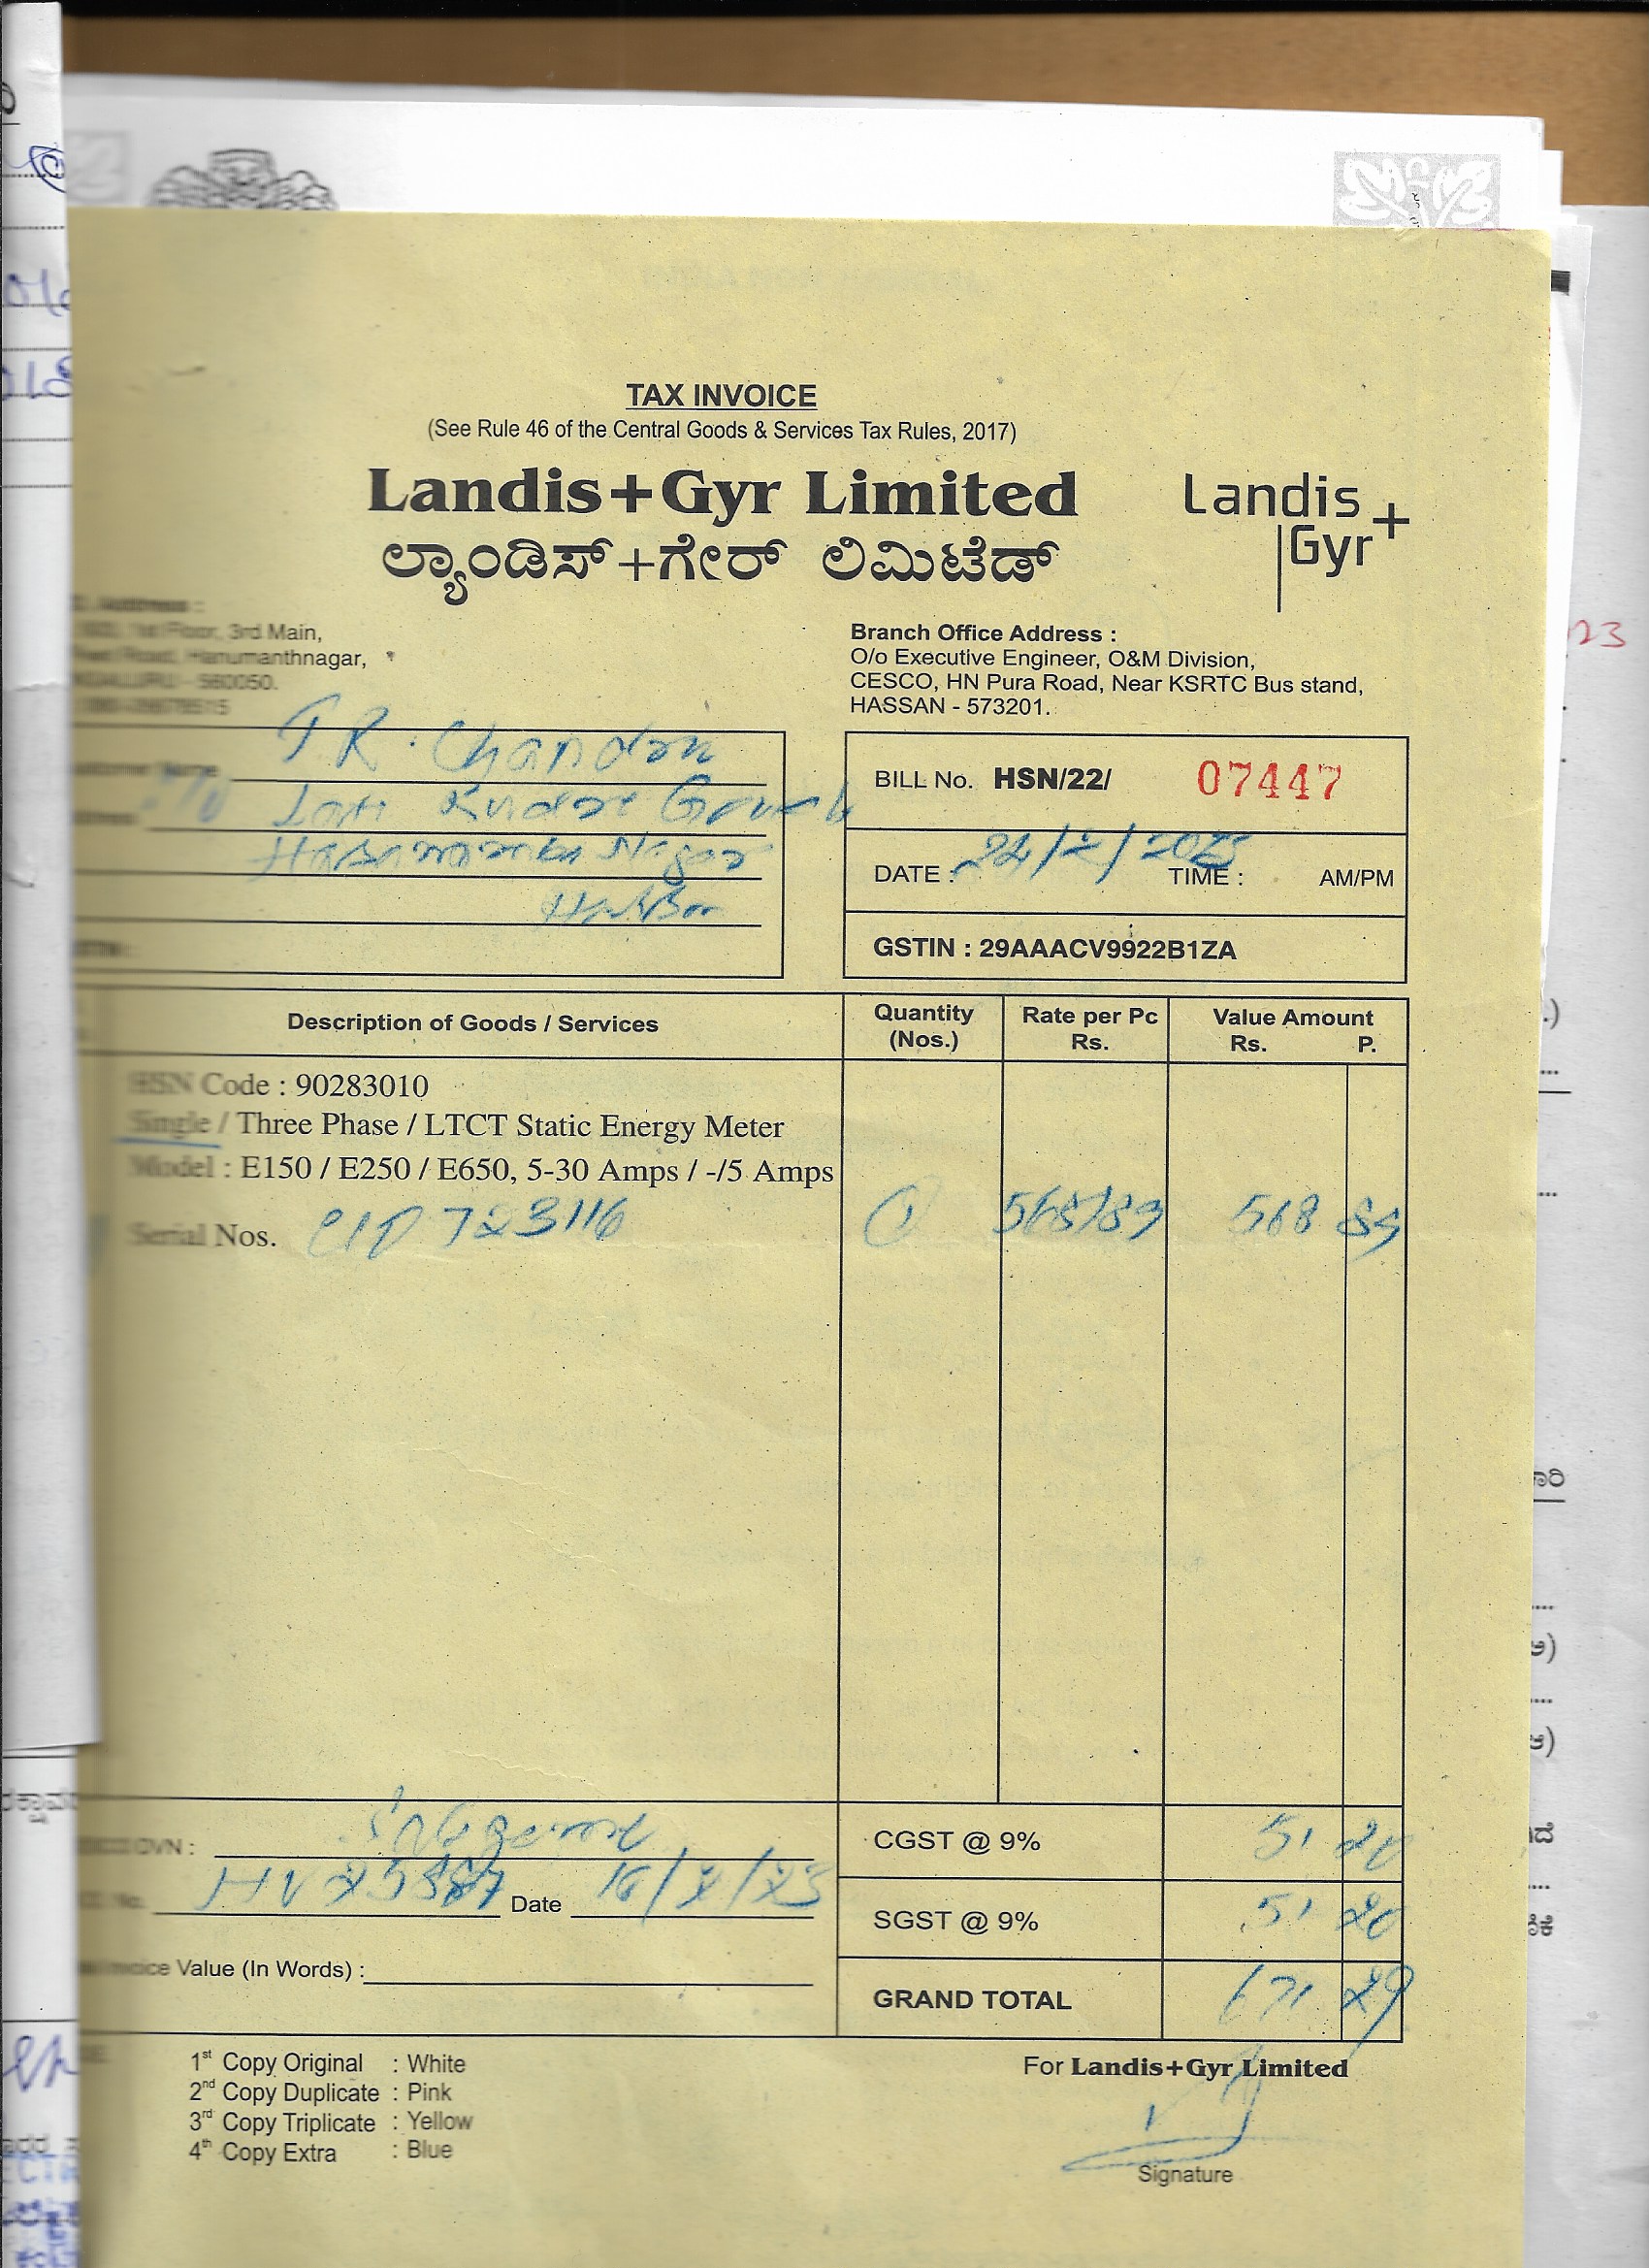 TAX INVOICE
(See Rule 46 of the Central Goods & Services Tax Rules, 2017)
Landis+Gyr Limited
ಲ್ಯಾಂಡಿಸ್+ಗೇರ್ ಲಿಮಿಟೆಡ್
Landis+
Gyr
Address :
1st Floor, 3rd Main,
Road, Hanumanthnagar,
- 560050.
Branch Office Address :
O/o Executive Engineer, O&M Division,
CESCO, HN Pura Road, Near KSRTC Bus stand,
HASSAN - 573201.
Customer Name T.R. Chandan
Nagar
BILL No. HSN/22/ 07447
DATE : 24/2/2023 TIME : AM/PM
GSTIN : 29AAACV9922B1ZA
Description of Goods / Services
Quantity (Nos.)
Rate per Pc Rs.
Value Amount Rs. P.
HSN Code : 90283010
Single / Three Phase / LTCT Static Energy Meter
Model : E150 / E250 / E650, 5-30 Amps / -/5 Amps
Serial Nos. 723116 1 568/89 568 89
CGST @ 9% 51 20
Date 16/2/23
SGST @ 9% 51 20
Invoice Value (In Words) :
GRAND TOTAL 671 29
1st Copy Original : White
2nd Copy Duplicate : Pink
3rd Copy Triplicate : Yellow
4th Copy Extra : Blue
For Landis+Gyr Limited
Signature